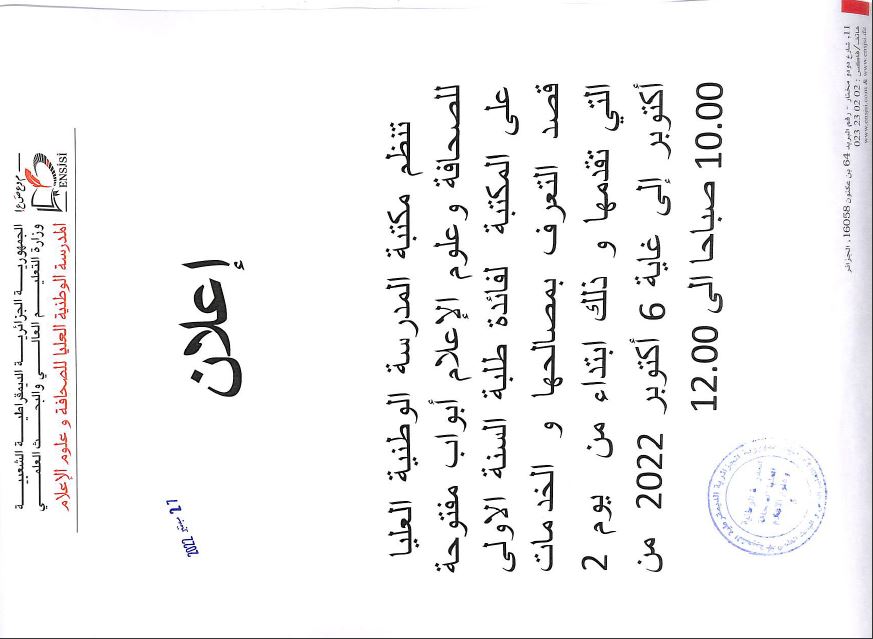 الجمهوريـــة الجزائريـــة الديمقراطيـــة الشعبيـــة
وزارة التعليـــم العالـــي والبحـــث العلمـــي
المدرسة الوطنية العليا للصحافة و علوم الإعلام
م و ع ص ع إ
ENSJSI
27 سبتمبر 2022
إعلان
تنظم مكتبة المدرسة الوطنية العليا
للصحافة و علوم الإعلام أبواب مفتوحة
على المكتبة لفائدة طلبة السنة الاولى
قصد التعرف بمصالحها و الخدمات
التي تقدمها و ذلك ابتداء من يوم 2
أكتوبر إلى غاية 6 أكتوبر 2022 من
10.00 صباحا الى 12.00
11، شارع دودو مختار - رقم البريد 64 بن عكنون 16058، الجزائر
هاتف/فاكس : 02 02 23 023